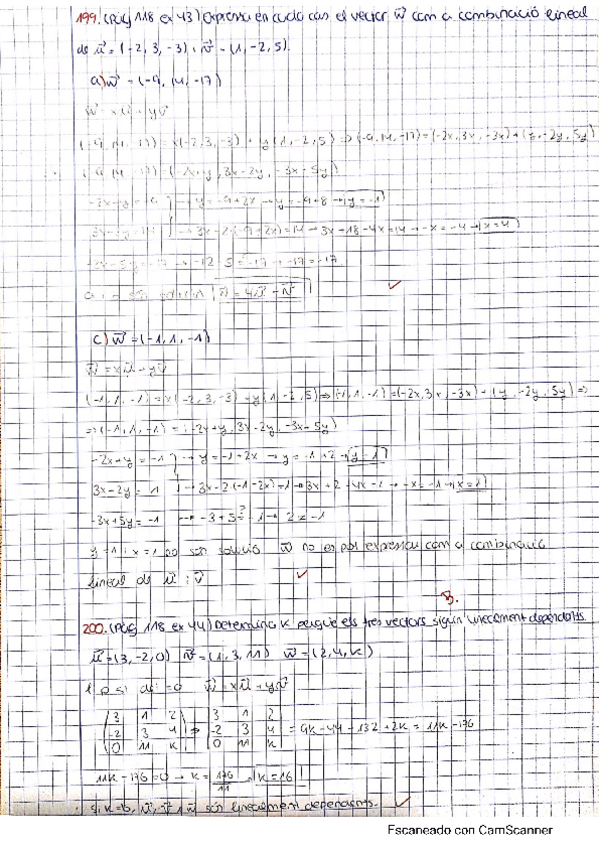 199. (Pàg 118 ex 43) Expressa en cada cas el vector w⃗ com a combinació lineal
de u⃗ = (-2, 3, -3) i v⃗ = (1, -2, 5).
a) w⃗ = (-9, 14, -17)
w⃗ = xu⃗ + yv⃗
(-9, 14, -17) = x(-2, 3, -3) + y(1, -2, 5) => (-9, 14, -17) = (-2x, 3x, -3x) + (y, -2y, 5y)
(-9, 14, -17) = (-2x+y, 3x-2y, -3x+5y)
-2x+y = -9 → y = -9+2x → y = -9+8 → y = -1
→ 3x-2(-9+2x) = 14 → 3x+18-4x = 14 → -x = -4 → x = 4
→ -12-5 = -17 → -17 = -17
w⃗ = 4u⃗ - v⃗
c) w⃗ = (-1, 1, -1)
w⃗ = xu⃗ + yv⃗
(-1, 1, -1) = x(-2, 3, -3) + y(1, -2, 5) => (-1, 1, -1) = (-2x, 3x, -3x) + (y, -2y, 5y) =>
=> (-1, 1, -1) = (-2x+y, 3x-2y, -3x+5y)
-2x+y = -1 → y = -1+2x → y = -1+2 → y = 1
3x-2y = 1 → 3x-2(-1+2x) = 1 → 3x+2-4x = 1 → -x = -1 → x = 1
-3x+5y = -1 → -3+5 = -1 → 2 ≠ -1
y = 1 i x = 1 no són solució w⃗ no es pot expressar com a combinació
lineal de u⃗ i v⃗
B.
200. (Pàg 118 ex 44) Determina K perquè els tres vectors siguin linealment dependents.
u⃗ = (3, -2, 0) v⃗ = (1, 3, 11) w⃗ = (2, 4, K)
w⃗ = xu⃗ + yv⃗
3 1 2 3 1 2
-2 3 4 => -2 3 4 = 9K - 44 - 132 + 2K = 11K - 176
0 11 K 0 11 K
11K - 176 = 0 → K = 176/11 K = 16
u⃗, v⃗ i w⃗ són linealment dependents.
Escaneado con CamScanner